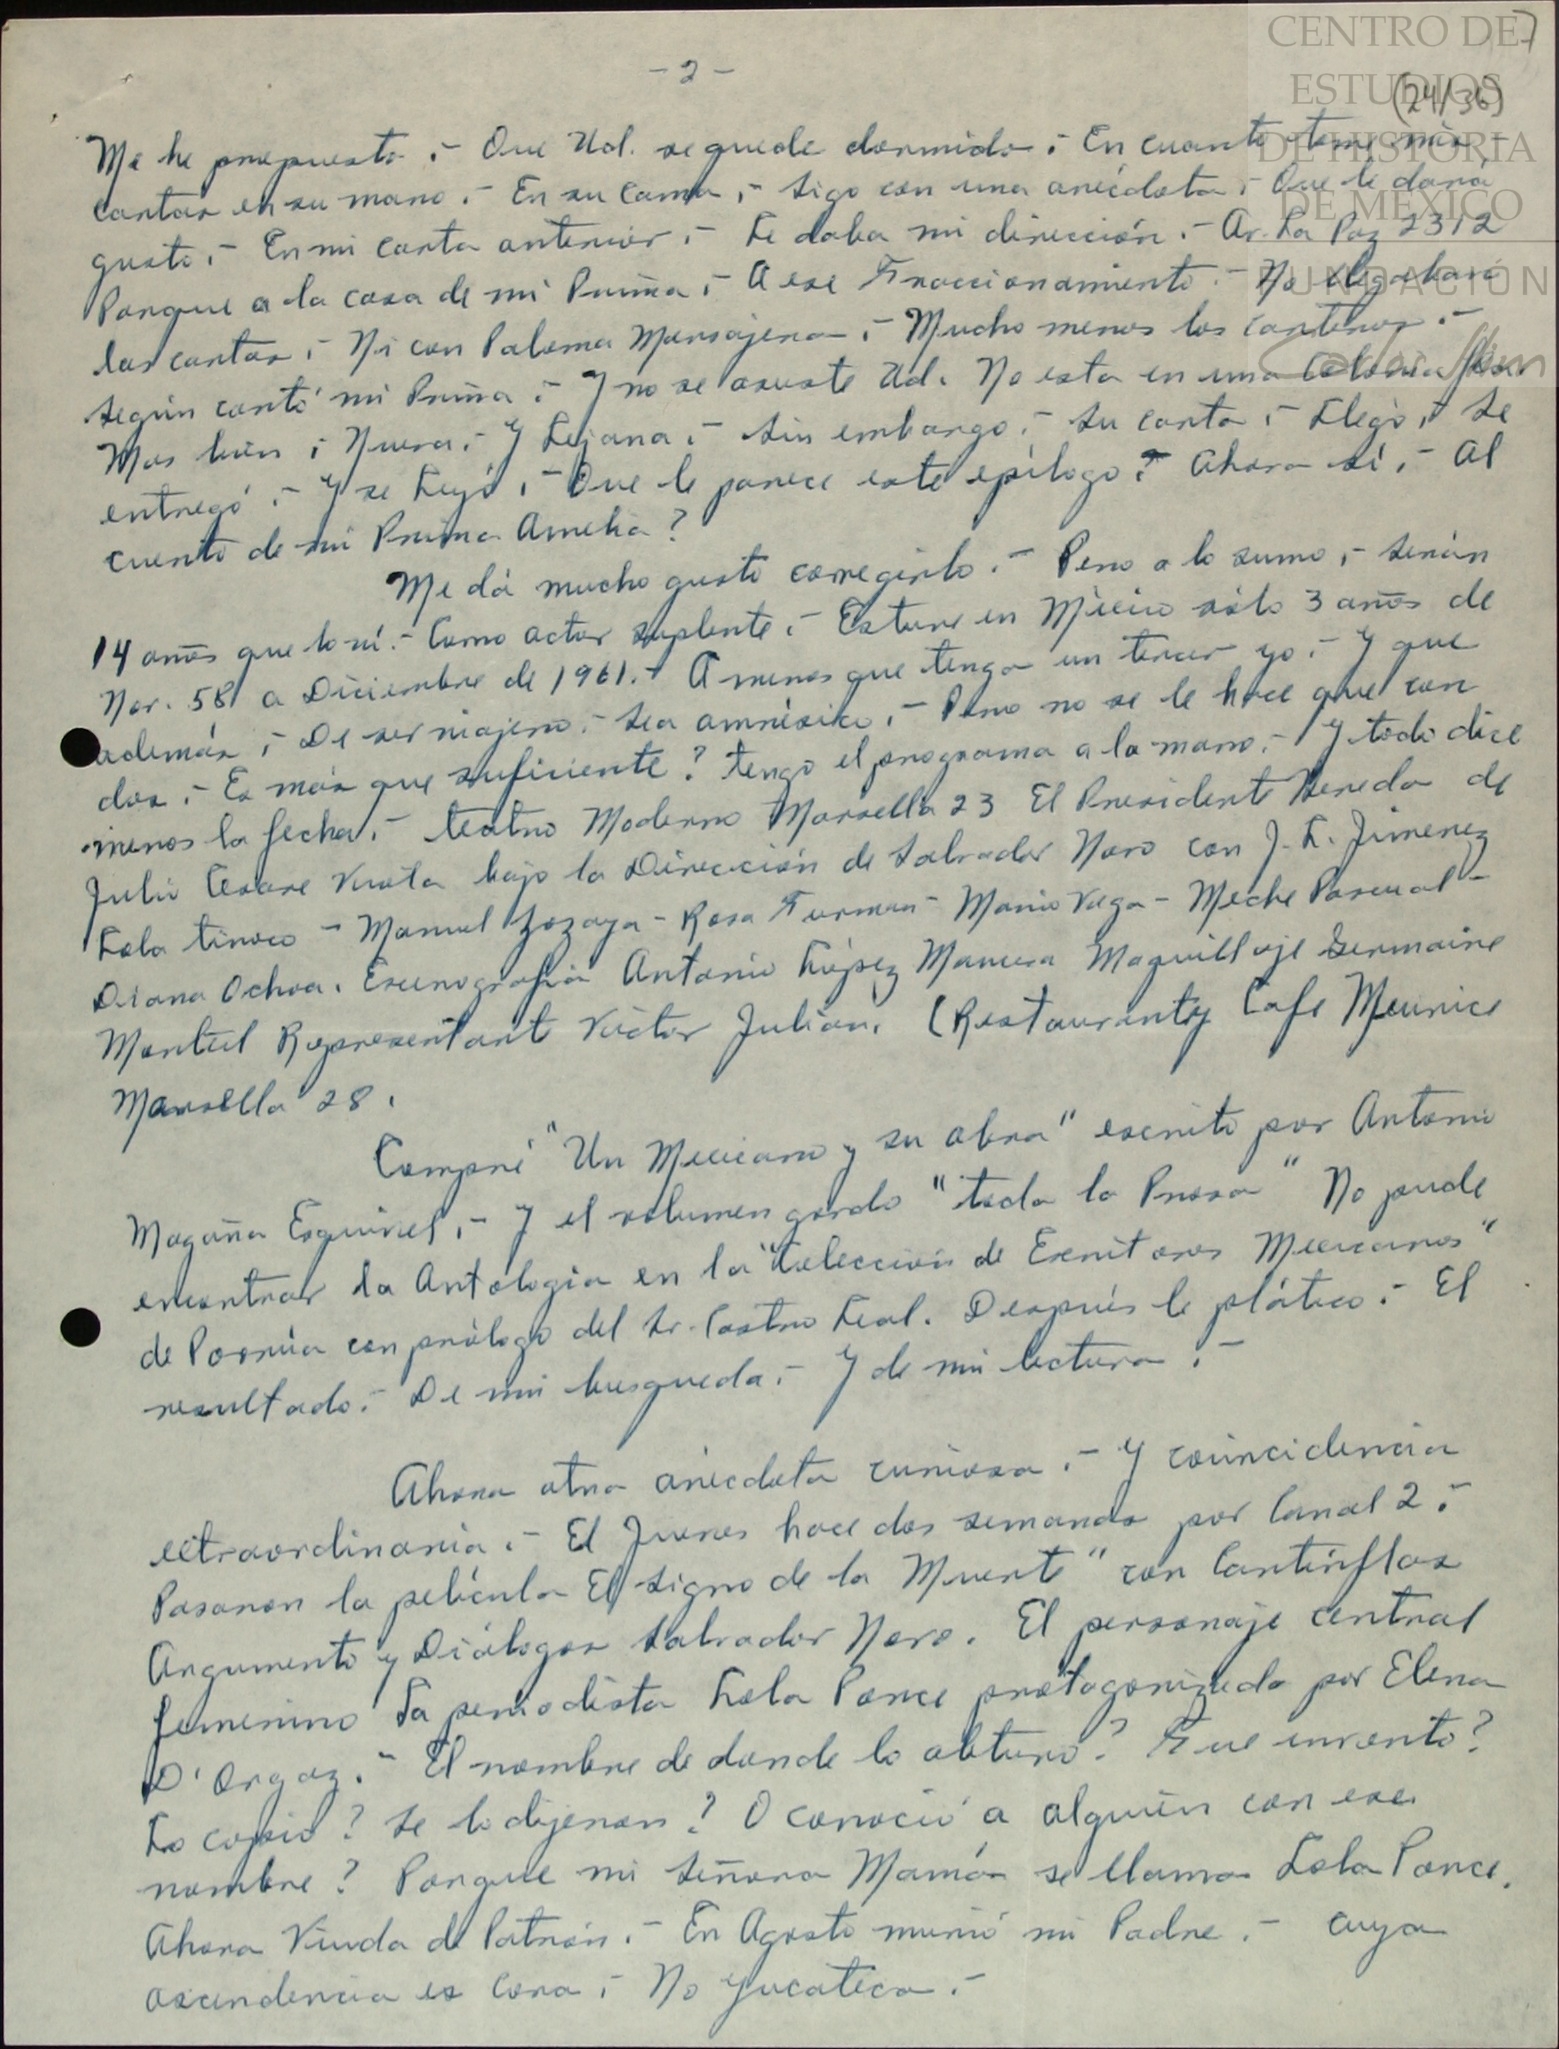 CENTRO DE
ESTUDIOS
DE HISTORIA
DE MÉXICO
FUNDACIÓN
7
(24/36)
- 2 -
Me he propuesto .- Que Ud. se quede dormido .- En cuanto tome mis
cartas en su mano .- En su cama .- Sigo con una anécdota .- Que le dará
gusto .- En mi carta anterior .- Le daba mi dirección .- Av. La Paz 2312
Porque a la casa de mi Prima .- A ese Fraccionamiento .- No llegaban
las cartas .- Ni con Paloma Mensajera .- Mucho menos los carteros .-
según contó mi Prima .- Y no se asuste Ud. No esta en una Colonia
Mas bien .- Nueva .- Y Lejana .- Sin embargo .- Su carta .- Llegó .- Se
entregó .- Y se Leyó .- Que le parece este epílogo ? Ahora sí .- Al
cuento de mi Prima Amelia ?
Me dá mucho gusto corregirlo .- Pero a lo sumo .- Serán
14 años que lo ví .- Como actor suplente .- Estuve en México sólo 3 años de
Nov. 58 a Diciembre de 1961 .- A menos que tenga un tercer yo .- Y que
además .- De ser viajero .- Sea amnésico .- Pero no se le hace que con
dos .- Es más que suficiente ? Tengo el programa a la mano .- Y todo dice
menos la fecha .- Teatro Moderno Marsella 23 El Presidente Hereda de
Julio Cesare Viola bajo la Dirección de Salvador Novo con J. L. Jimenez
Lola Tinoco - Manuel Zozaya - Rosa Furman - Mario Vega - Meche Pascual -
Diana Ochoa. Escenografía Antonio López Mancera Maquillaje Germaine
Montiel Representante Victor Julian. (Restaurant y Cafe Meurice
Marsella 28.
Compré "Un Mexicano y su obra" escrito por Antonio
Magaña Esquivel .- Y el volumen gordo "Toda la Prosa" No pude
encontrar la Antología en la "Colección de Escritores Mexicanos"
de Porrúa con prólogo del Sr. Castro Leal. Después le plático .- El
resultado .- De mi busqueda .- Y de mi lectura .-
Ahora otra anécdota curiosa .- Y coincidencia
extraordinaria .- El Jueves hace dos semanas por Canal 2 .-
Pasaron la película El Signo de la Muerte" con Cantinflas
Argumento y Diálogos Salvador Novo. El personaje central
femenino La periodista Lola Ponce protagonizada por Elena
D'Orgaz .- El nombre de donde lo obtuvo ? Fue invento ?
Lo copió ? Se lo dijeron ? O conoció a alguien con ese
nombre ? Porque mi Señora Mamá se llama Lola Ponce.
Ahora Viuda de Patrón .- En Agosto murió mi Padre .- cuya
ascendencia es Cora .- No Yucateca .-